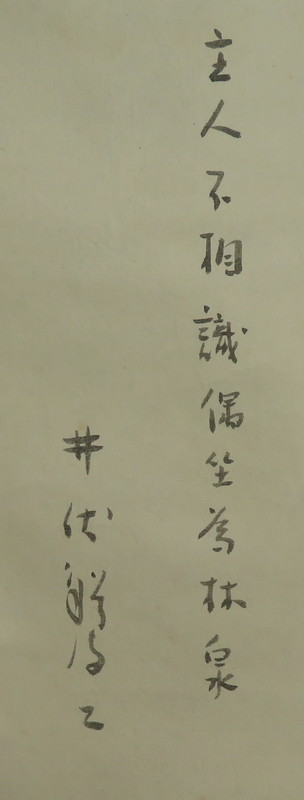 主人不相識偶坐為林泉
井伏鱒二